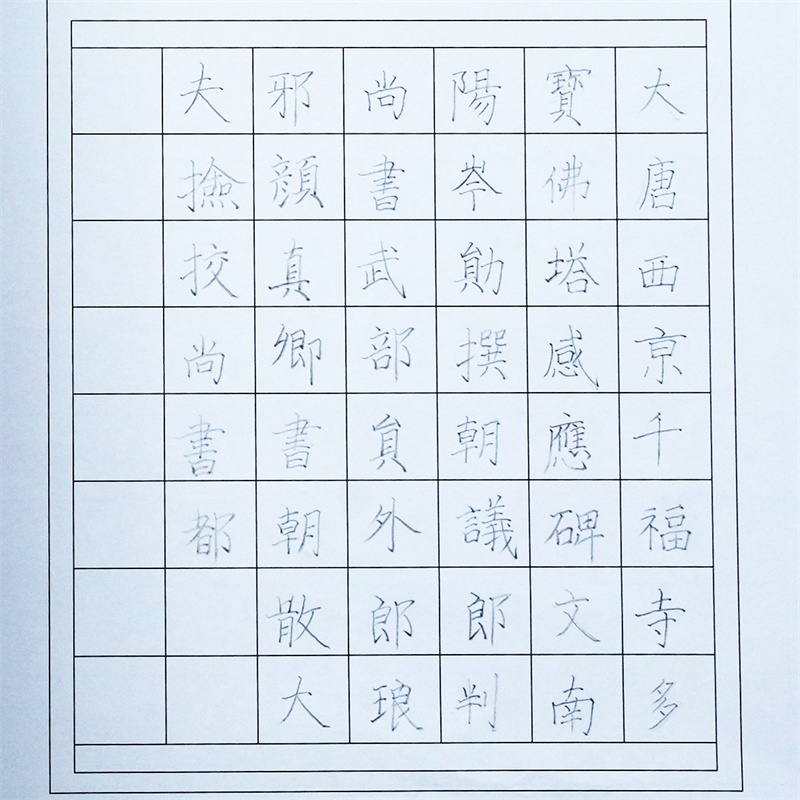 大唐西京千福寺多
寶佛塔感應碑文南
陽岑勛撰朝議郎判
尚書武部員外郎琅
邪顏真卿書朝散大
夫撿挍尚書都